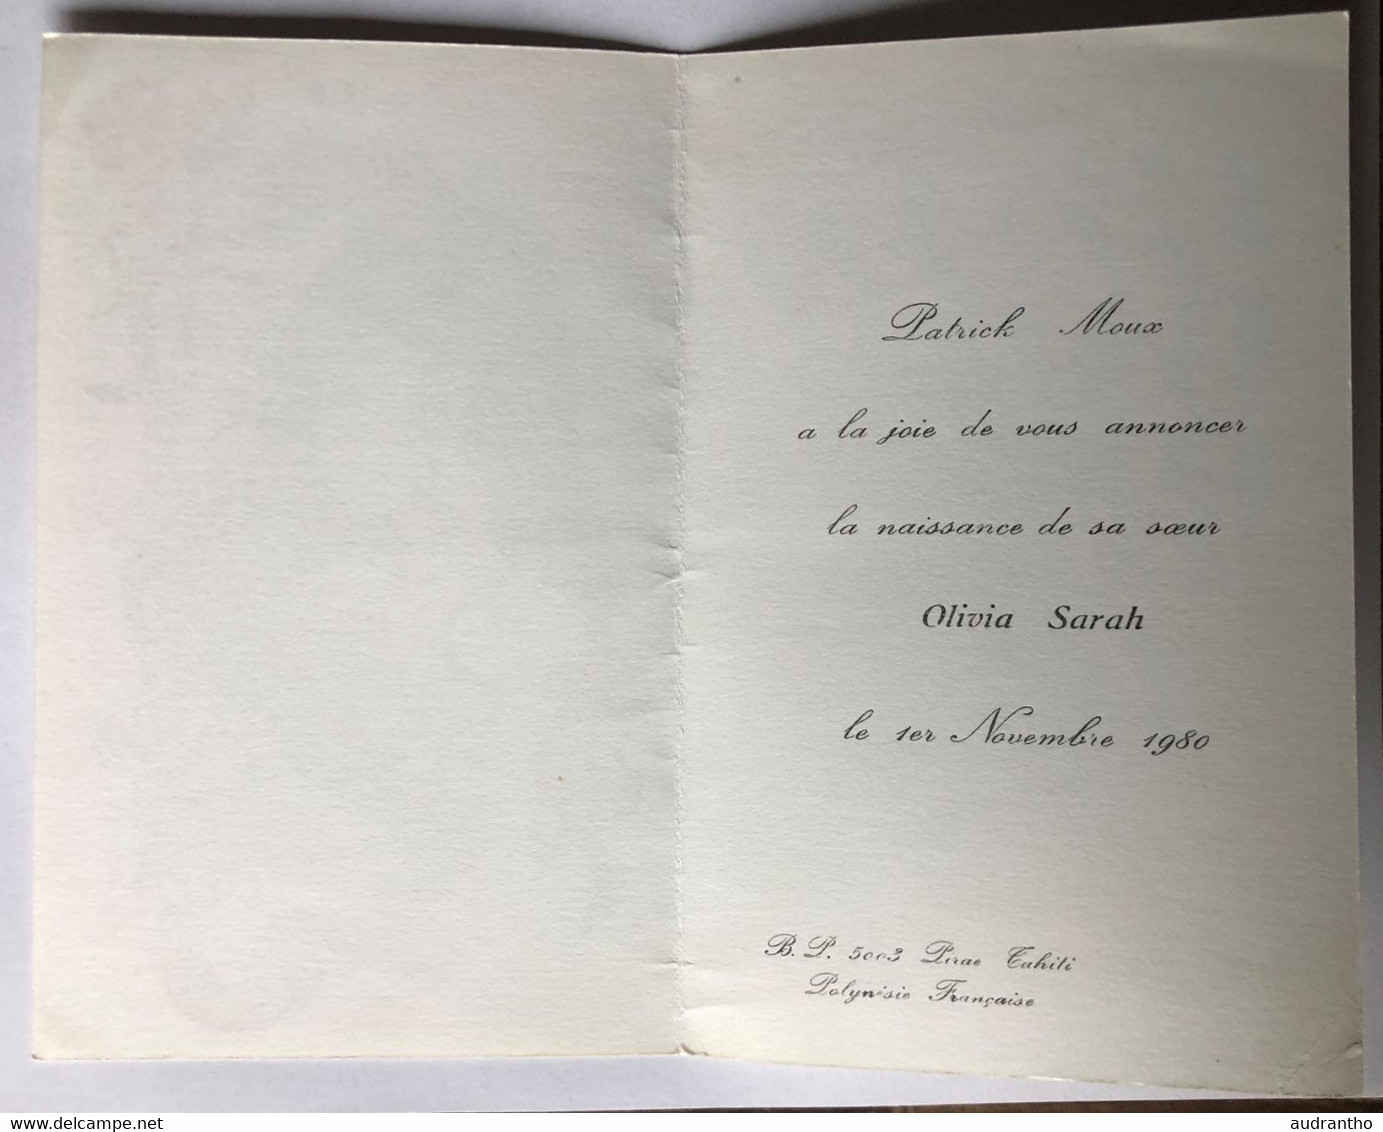 Patrick Moux
a la joie de vous annoncer
la naissance de sa sœur
Olivia Sarah
le 1er Novembre 1980
B. P. 5003 Pirae Tahiti
Polynésie Française
delcampe.net
audrantho